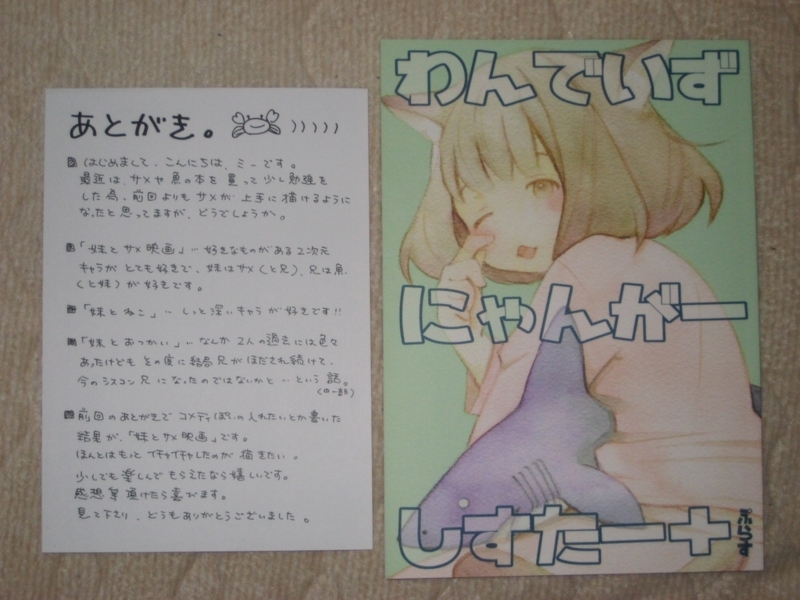 あとがき。
はじめまして、こんにちは、ミーです。
最近は、サメや魚の本を買って少し勉強を
した為、前回よりもサメが上手に描けるように
なったと思ってますが、どうでしょうか。
「妹とサメ映画」… 好きなものがある2次元
キャラがとても好きで、妹はサメ(と兄)、兄は魚
(と妹)が好きです。
「妹とねこ」… しっと深いキャラが好きです!!
「妹とあつかい」… なんか2人の過去には色々
あったけどもその度に結局兄がほだされ続けて、
今のシスコン兄になったのではないかと…という話。
(の一部)
前回のあとがきでコメディぽいの入れたいとか書いた
結果が、「妹とサメ映画」です。
ほんとはもっとイチャイチャしたのが描きたい。
少しでも楽しんでもらえたなら嬉しいです。
感想等頂けたら喜びます。
見て下さり、どうもありがとうございました。
わんでいず
にゃんがー
しすたー+